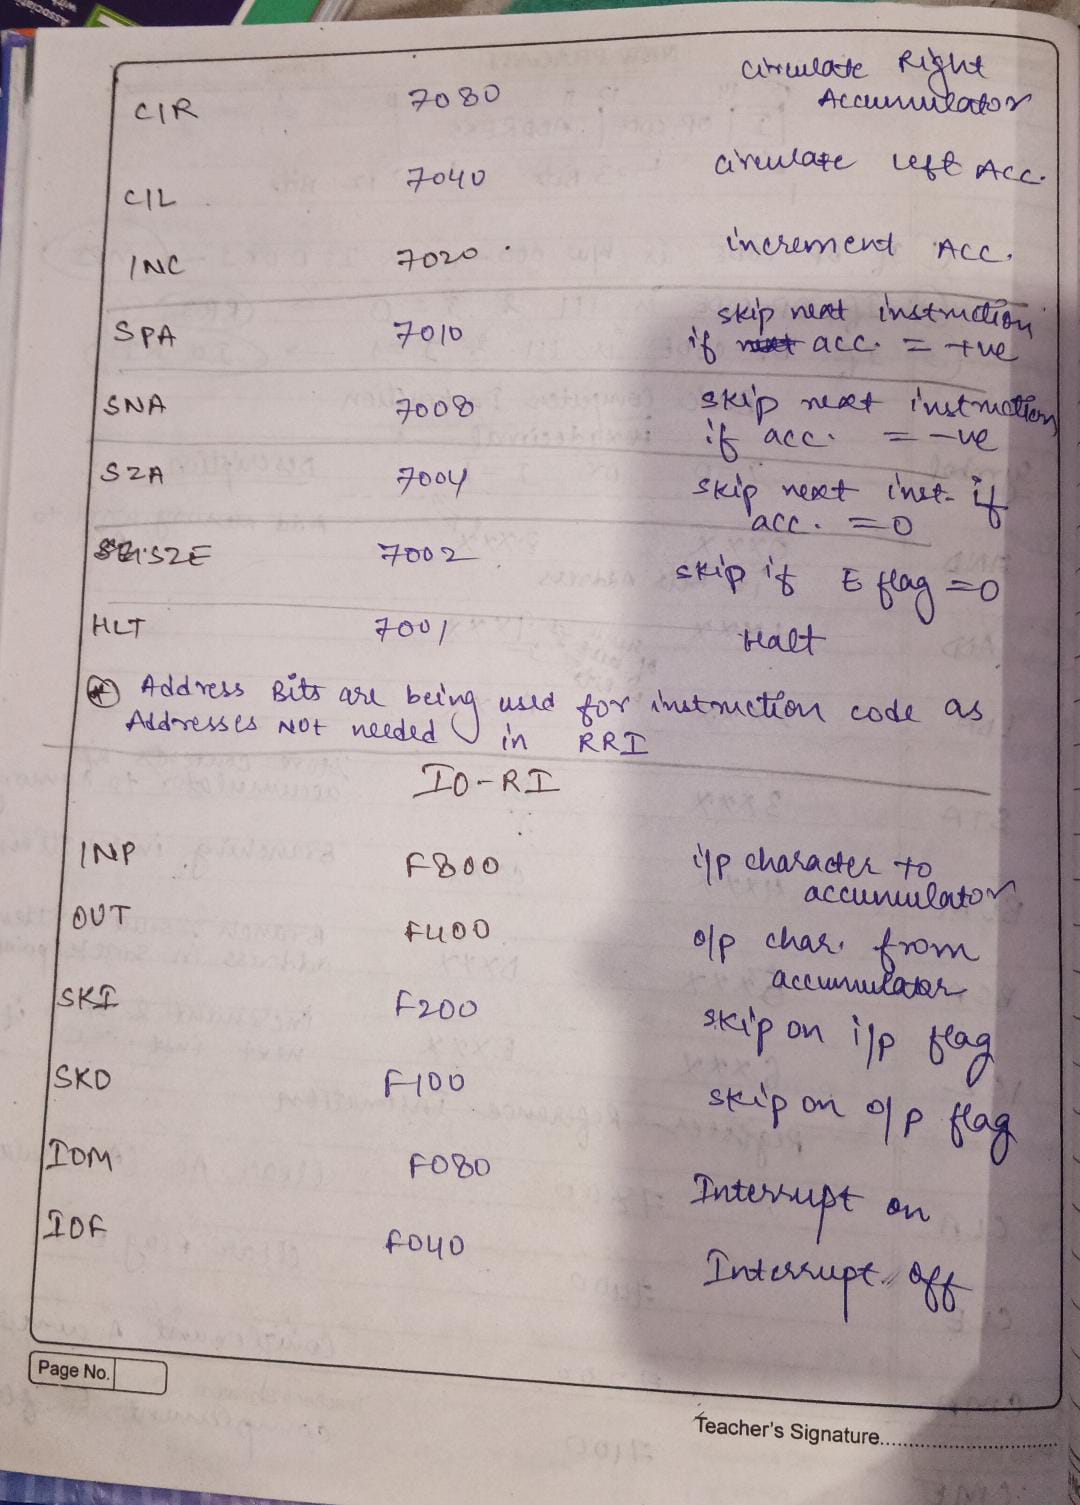 CIR 7080 circulate Right
Accumulator
CIL 7040 circulate left Acc.
INC 7020 increment Acc.
SPA 7010 skip next instruction
if acc. = +ve
SNA 7008 skip next instruction
if acc. = -ve
SZA 7004 skip next inst. if
acc. = 0
SZE 7002 skip if E flag = 0
HLT 7001 Halt
Address Bits are being used for instruction code as
Addresses NOT needed in RRI
IO-RI
INP F800 i/p character to
accumulator
OUT F400 o/p char. from
accumulator
SKI F200 skip on i/p flag
SKO F100 skip on o/p flag
IOM F080 Interrupt on
IOF F040 Interrupt off
Page No.
Teacher's Signature